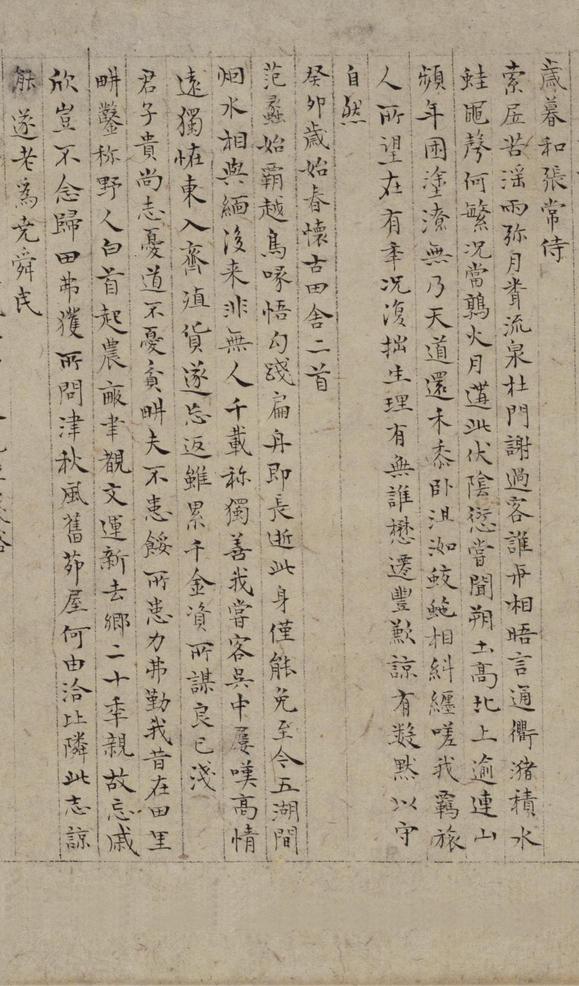 歲暮和張常侍
索居苦淫雨弥月賷流泉杜門謝過客誰再相晤言通衢潴積水
蛙黽聲何繁況當鶉火月遘此伏陰愆嘗聞朔土高北上逾連山
頻年困塗潦無乃天道還禾黍卧沮洳鮫鮑相糾纏嗟我羈旅
人所望在有年况復拙生理有無誰懋遷豐歉諒有数默以守
自然
癸卯歲始春懷古田舍二首
范蠡始霸越鳥喙悟勾踐扁舟即長逝此身僅能免至今五湖間
烟水相與緬後来非無人千載称獨善我嘗客吳中屢嘆高情
遠獨恠東入齊殖貨遂忘返雖累千金資所謀良已淺
君子貴尚志憂道不憂貧畊夫不患餒所患力弗勤我昔在田里
畊鑿称野人白首起農畝聿觀文運新去鄉二十年親故忘戚
欣豈不念歸田弗獲所問津秋風舊茆屋何由洽比隣此志諒
能遂老為尭舜民